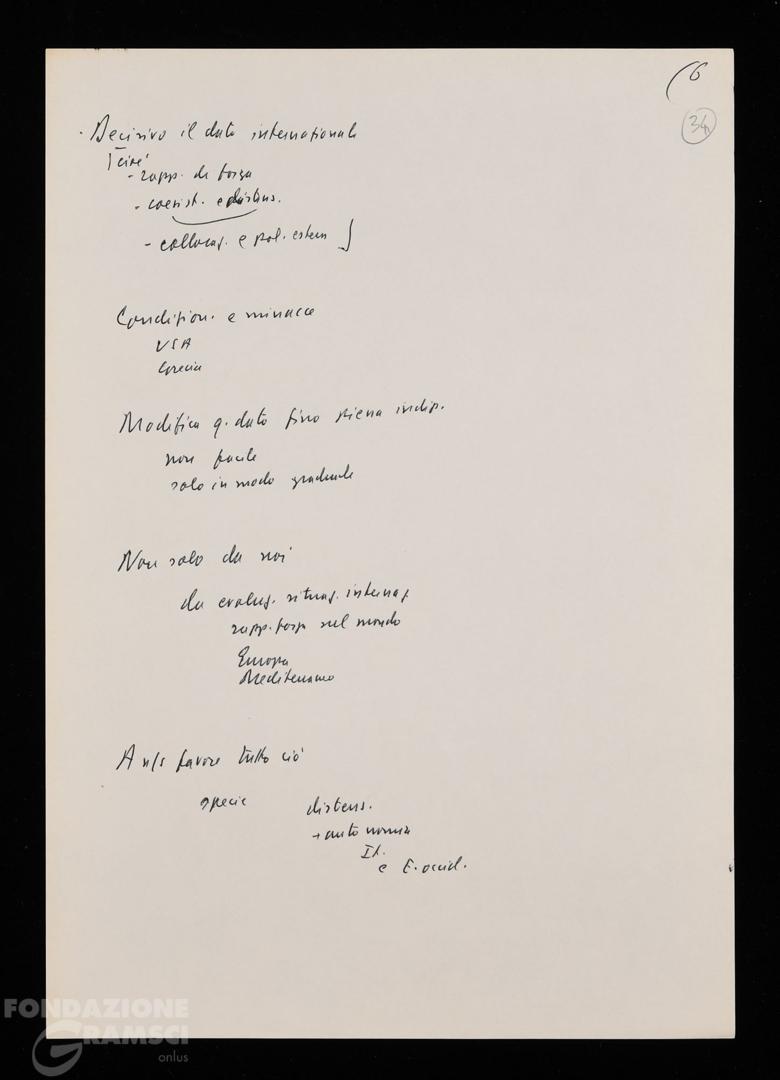 (6
34
· Decisivo il dato internazionale
cioè
- rapp. di forza
- coesist. e distens.
- collocaz. e pol. estera
Condizion. e minacce
USA
Grecia
Modifica q. dato fino piena indip.
non facile
solo in modo graduale
Non solo da noi
da evoluz. situaz. internaz.
rapp. forza nel mondo
Europa
Mediterraneo
A n/s favore tutto ciò
specie distens.
+ autonomia
It.
e E. occid.
FONDAZIONE
GRAMSCI
onlus